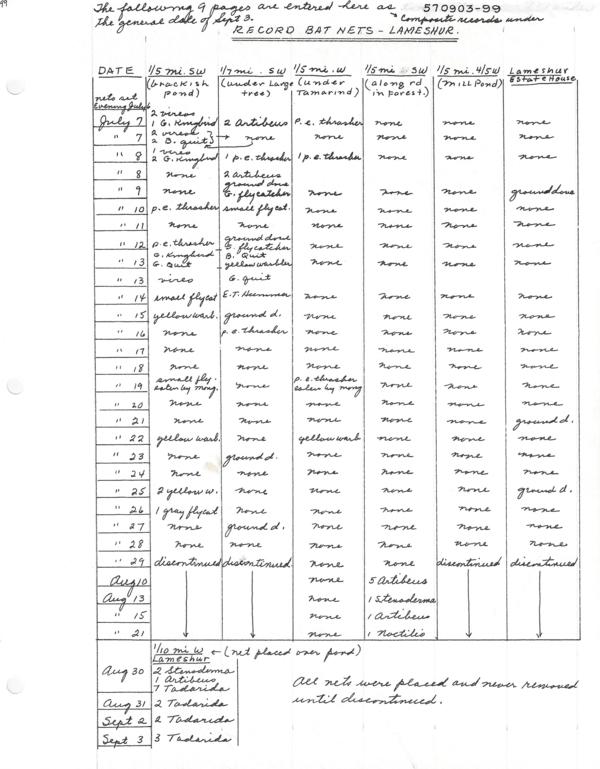 99
The following 9 pages are entered here as 570903-99
the general date of Sept 3. Composite records under
RECORD BAT NETS - LAMESHUR.
DATE 1/5 mi. SW 1/7 mi. SW 1/5 mi. W 1/5 mi SW 1/5 mi. 4/5W Lameshur
(brackish (under Large (under (along rd (mill Pond) Estate House
pond) tree) Tamarind) in Forest.)
nets set
Evening July 6
July 7 2 vireos
1 G. Kingbird 2 Artibeus p.e. thrasher none none none
" 7 2 vireos
2 B. quit none none none none none
" 8 1 vireo
2 G. Kingbird 1 p.e. thrasher 1 p.e. thrasher none none none
" 8 none 2 artibeus
" 9 none ground dove
G. flycatcher none none none ground dove
" 10 p.e. thrasher small flycat. none none none none
" 11 none none none none none none
" 12 p.e. thrasher ground dove
G. flycatcher none none none none
" 13 G. Kingbird
G. Quit B. Quit
yellow warbler none none none none
" 13 vireo G. quit
" 14 small flycat E.T. Hummer none none none none
" 15 yellow warb. ground d. none none none none
" 16 none p.e. thrasher none none none none
" 17 none none none none none none
" 18 none none none none none none
" 19 small fly.
eaten by mong. none p.e. thrasher
eaten by mong none none none
" 20 none none none none none none
" 21 none none none none none ground d.
" 22 yellow warb. none yellow warb none none none
" 23 none ground d. none none none none
" 24 none none none none none none
" 25 2 yellow w. none none none none ground d.
" 26 1 gray flycat none none none none none
" 27 none ground d. none none none none
" 28 none none none none none none
" 29 discontinued discontinued none none discontinued discontinued
Aug 10 none 5 Artibeus
Aug 13 none 1 Stenoderma
" 15 none 1 Artibeus
" 21 none 1 Noctilio
1/10 mi W ← (net placed over pond)
Lameshur
Aug 30 2 Stenoderma
1 Artibeus
7 Tadarida
Aug 31 2 Tadarida
Sept 2 2 Tadarida
Sept 3 3 Tadarida
All nets were placed and never removed
until discontinued.